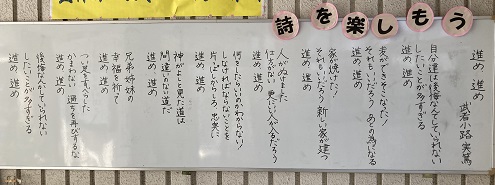 詩を楽しもう
進め 進め
武者小路 実篤
自分達は後悔なんてしていられない
したいことが多すぎる
進め 進め
麦ができそこなった!
それもいいだろう あとの為になる
進め 進め
家が焼けた!
それもいいだろう 新しい家が建つ
進め 進め
人がぬけました
仕方がない 更にいい人が入るだろう
進め 進め
何をしたらいいのかわからない!
しなければならないことを
片っぱしからしろ 忠実に
進め 進め
神がよしと見た道は
間違いのない道だ
進め 進め
兄弟姉妹の
幸福を祈て
進め 進め
つい足をすべらした
かまわない 過ちを再びするな
進め 進め
後悔なんかしていられない
したいことが多すぎる
進め 進め